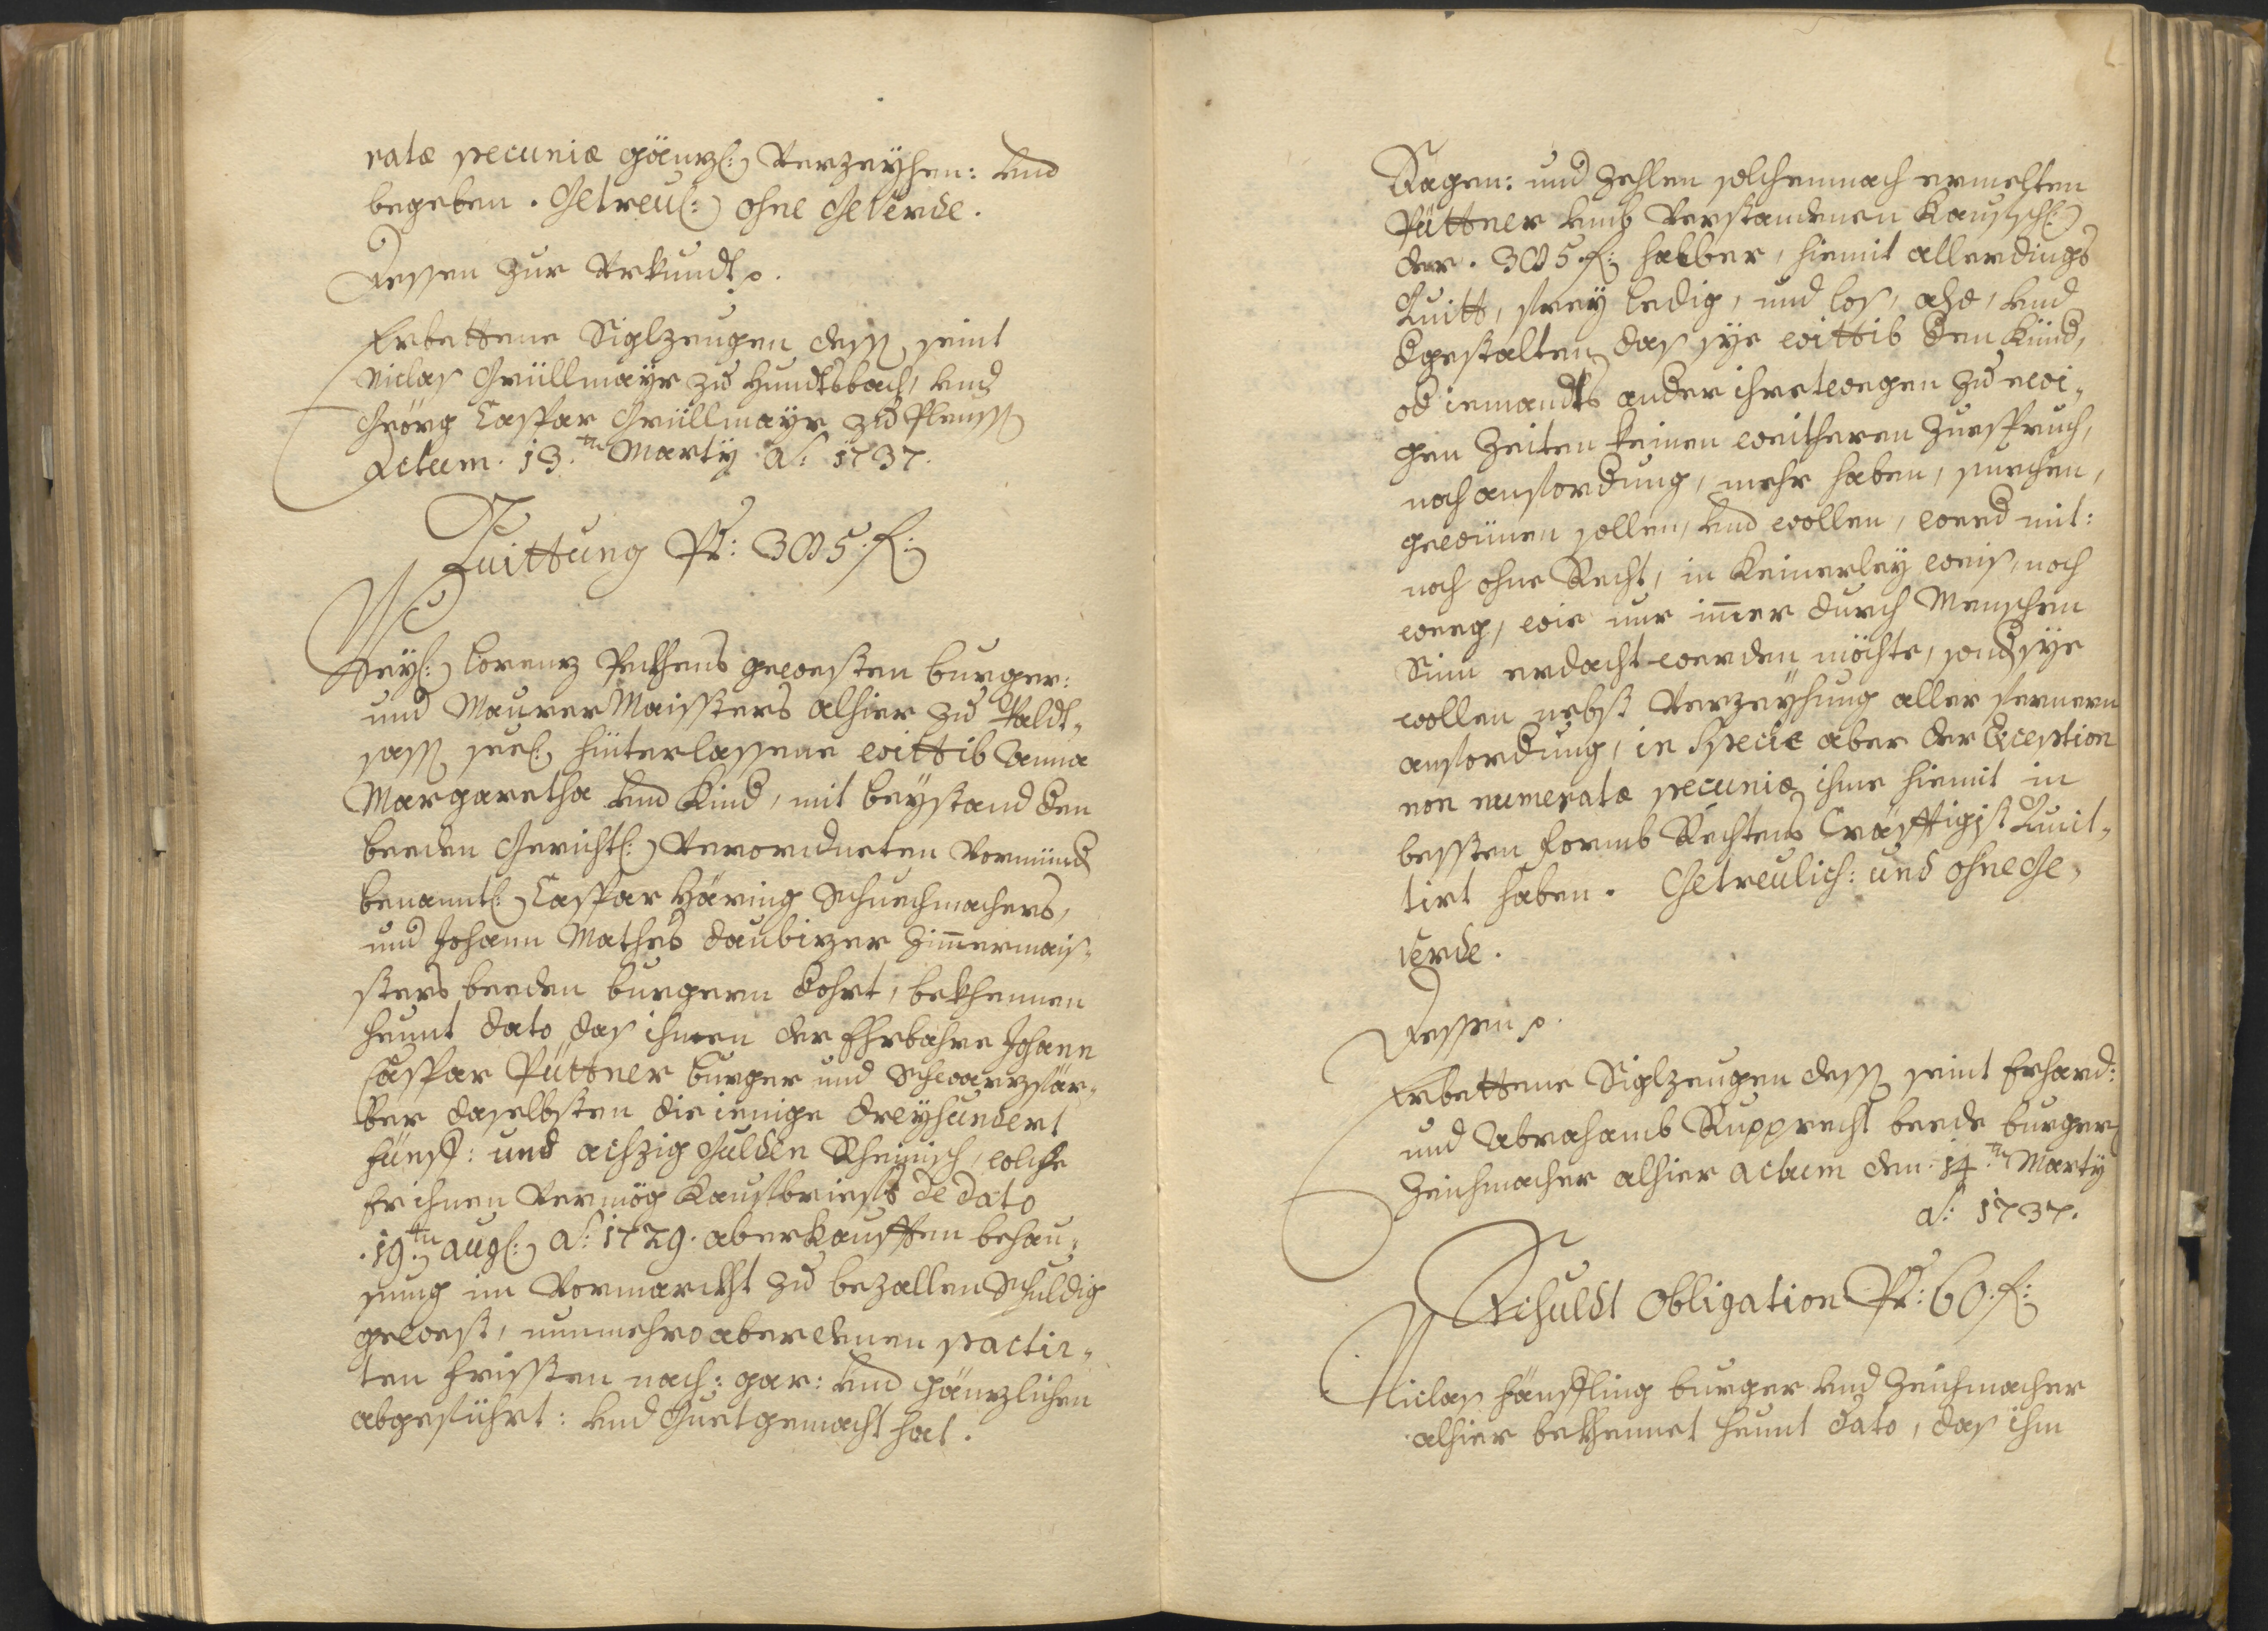 ratæ pecuniæ gänzl: Verzeyhen: Und
begeben. Getreul: ohne Geverde.
Dessen zur Urkundt p.
Erbettene Siglzeugen dess seint
Niclas Grüllmayr zu Hundtsbach, und
Geörg Caspar Grüllmayr zu Plenss
Actum. 13.ten Marty aͦ: 1737.
Quittung Pr: 385. f:
Weyl: Lorenz Peckhens gewesten burger:
und Maurer Maissters alhier zu Waldt-
sass seel: hinterlassene wittib Anna
Margaretha und Kind, mit beystand der
beeden Gerichtl: Verordneten Vormünd
benanntl: Caspar Häring Schuechmachers,
und Johann Mathes Daubizer Zimmermais-
sters beeden burgern dohrt, bekhennen
heunt dato, das ihnen der Ehrbahre Johann
Caspar Püttner burger und Schwarzfär-
ber daselbsten die ienige dreyhundert
fünff: und achzig Gulden Rheinisch, welche
Er ihnen Vermög Kaufbriefs de dato
19.ten augl: aͦ: 1729. aberkaufften behau-
sung im Vormarckht zu bezallen Schuldig
gewest, nunmehro aber denen pactir-
ten frissten nach: gar: und gänzlichen
abgeführt: und Guet gemacht hat.
Sagen: und Zehlen solchemnach ermelten
Püttner umb Verstandenen Kaufschl:
der. 385. f: halber, hiemit allerdings
Quitt, frey ledig, und los, also, und
dgestalten, das sye wittib den Kind,
od iemandts ander ihretwegen zu ewi-
gen Zeiten keinen weitheren Zuespruch,
noch anfordung, mehr haben, suechen,
gewinnen sollen, und wollen, wed mit:
noch ohne Recht, in keinerley weis, noch
weeg, wie nur immer durch Menschen
Sinn erdacht werden möchte, sond sye
wollen nebst Verzeyhung aller fernern
anfordung, in Specie aber der Exception
non numeratæ pecuniæ ihme hiemit in
bessten Formb Rechtens Cräfftigist Quit-
tirt haben. Getreulich: und ohne Ge-
verde.
Dessen p.
Erbettene Siglzeugen dess seint Erhard:
und Abrahamb Rupprecht beede burger
Zeichmacher alhier Actum den 14.ten Marty
aͦ: 1737.
Schuldt Obligation Pr: 60. f:
Niclas Hänffling burger und Zeichmacher
alhier bekhennet heunt dato, das ihm